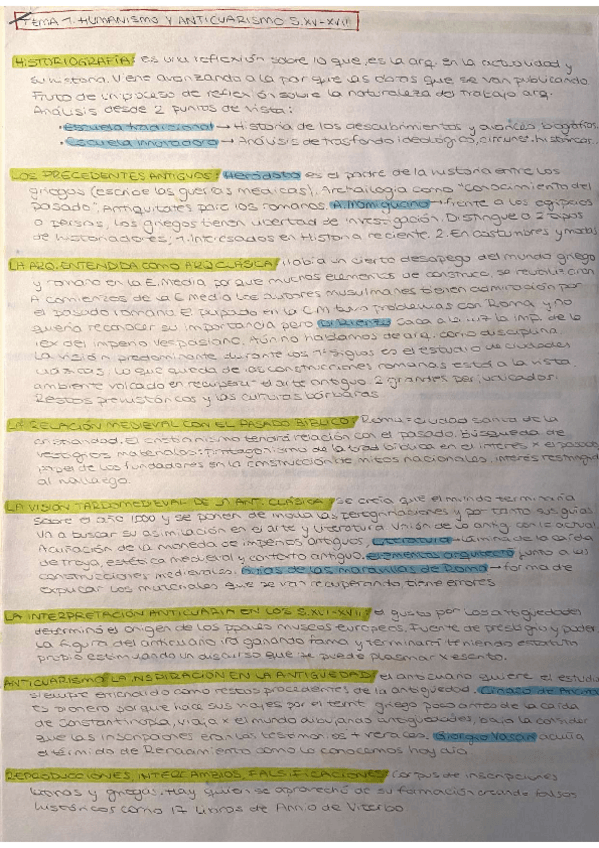 TEMA 1. HUMANISMO Y ANTICUARISMO S.XV-XVIII
HISTORIOGRAFÍA: es una reflexión sobre lo que es la arq. en la actualidad y
su historia. Viene avanzando a la par que las datos que se van publicando
Fruto de un proceso de reflexión sobre la naturaleza del trabajo arq.
Análisis desde 2 puntos de vista:
· escuela tradicional → Historia de los descubrimientos y avances biográficos
· escuela innovadora → Análisis de trasfondo ideológico, circuns. históricas..
LOS PRECEDENTES ANTIGUOS: Herodoto es el padre de la historia entre los
griegos (escribe las guerras médicas). Archailogia como "conocimiento del
pasado", Antiquitates para los romanos. A. Momigliano → frente a los egipcios
o persas, los griegos tienen libertad de investigación. Distingue a 2 tipos
de historiadores, 1. Interesados en Historia reciente. 2. En costumbres y modos
LA ARQ. ENTENDIDA COMO ARQ CLÁSICA: Había un cierto desapego del mundo griego
y romano en la E.Media porque muchos elementos de construcc. se reutilizaron
A comienzos de la E media los autores musulmanes tienen admiración por
el pasado romano. El papado en la EM tuvo problemas con Roma y no
quería reconocer su importancia pero Di Rienzo saca a la luz la imp. de la
lex del imperio Vespasiano. Aún no hablamos de arq. como disciplina
La visión predominante durante los 1ºs siglos es el estudio de ciudades
clásicas, lo que queda de las construcciones romanas está a la vista.
ambiente volcado en recuperar el arte antiguo. 2 grandes per.
Restos prehistóricos y las culturas bárbaras
LA RELACIÓN MEDIEVAL CON EL PASADO BÍBLICO: Roma = ciudad santa de la
cristiandad. El cristianismo tendrá relación con el pasado. Búsqueda de
vestigios materiales: Protagonismo de la trad bíblica en el interés x el pasado,
papel de los fundadores en la construcción de mitos nacionales, interés restringido
al hallazgo.
LA VISIÓN TARDOMEDIEVAL DE LA ANT. CLÁSICA: se creía que el mundo terminaría
sobre el año 1000 y se ponen de moda las peregrinaciones y por tanto sus guías
Van a buscar su asimilación en el arte y literatura unión de lo antig con lo actual.
Acuñación de la moneda de imperios antiguos. Literatura → lámina de la caída
de troya, estética medieval y contexto antiguo, elementos arquitectó junto a las
construcciones medievales. de las maravillas de Roma → forma de
explicar los materiales que se van recuperando, tiene errores
LA INTERPRETACIÓN ANTICUARIA EN LOS S. XVI-XVII: el gusto por las antigüedades
determinó el origen de los ppales museos europeos. Fuente de prestigio y poder
La figura del anticuario irá ganando fama y terminará teniendo estatuto
propio estimulando un discurso que se puede plasmar x escrito.
ANTICUARISMO: LA INSPIRACIÓN EN LA ANTIGÜEDAD: el anticuario quiere el estudio
siempre entendido como restos procedentes de la antigüedad. Ciriaco de Ancona
es pionero porque hace sus viajes por el territ. griego poco antes de la caída
de Constantinopla, viaja x el mundo dibujando antigüedades, bajo la consider
que las inscripciones eran los testimonios + veraces. Giorgio Vasari acuña
el término de Renacimiento como lo conocemos hoy día
REPRODUCCIONES, INTERCAMBIOS, FALSIFICACIONES: Corpus de inscripciones
latinas y griegas. Hay quien se aprovechó de su formación creando falsos
históricos como 17 libros de Annio de Viterbo